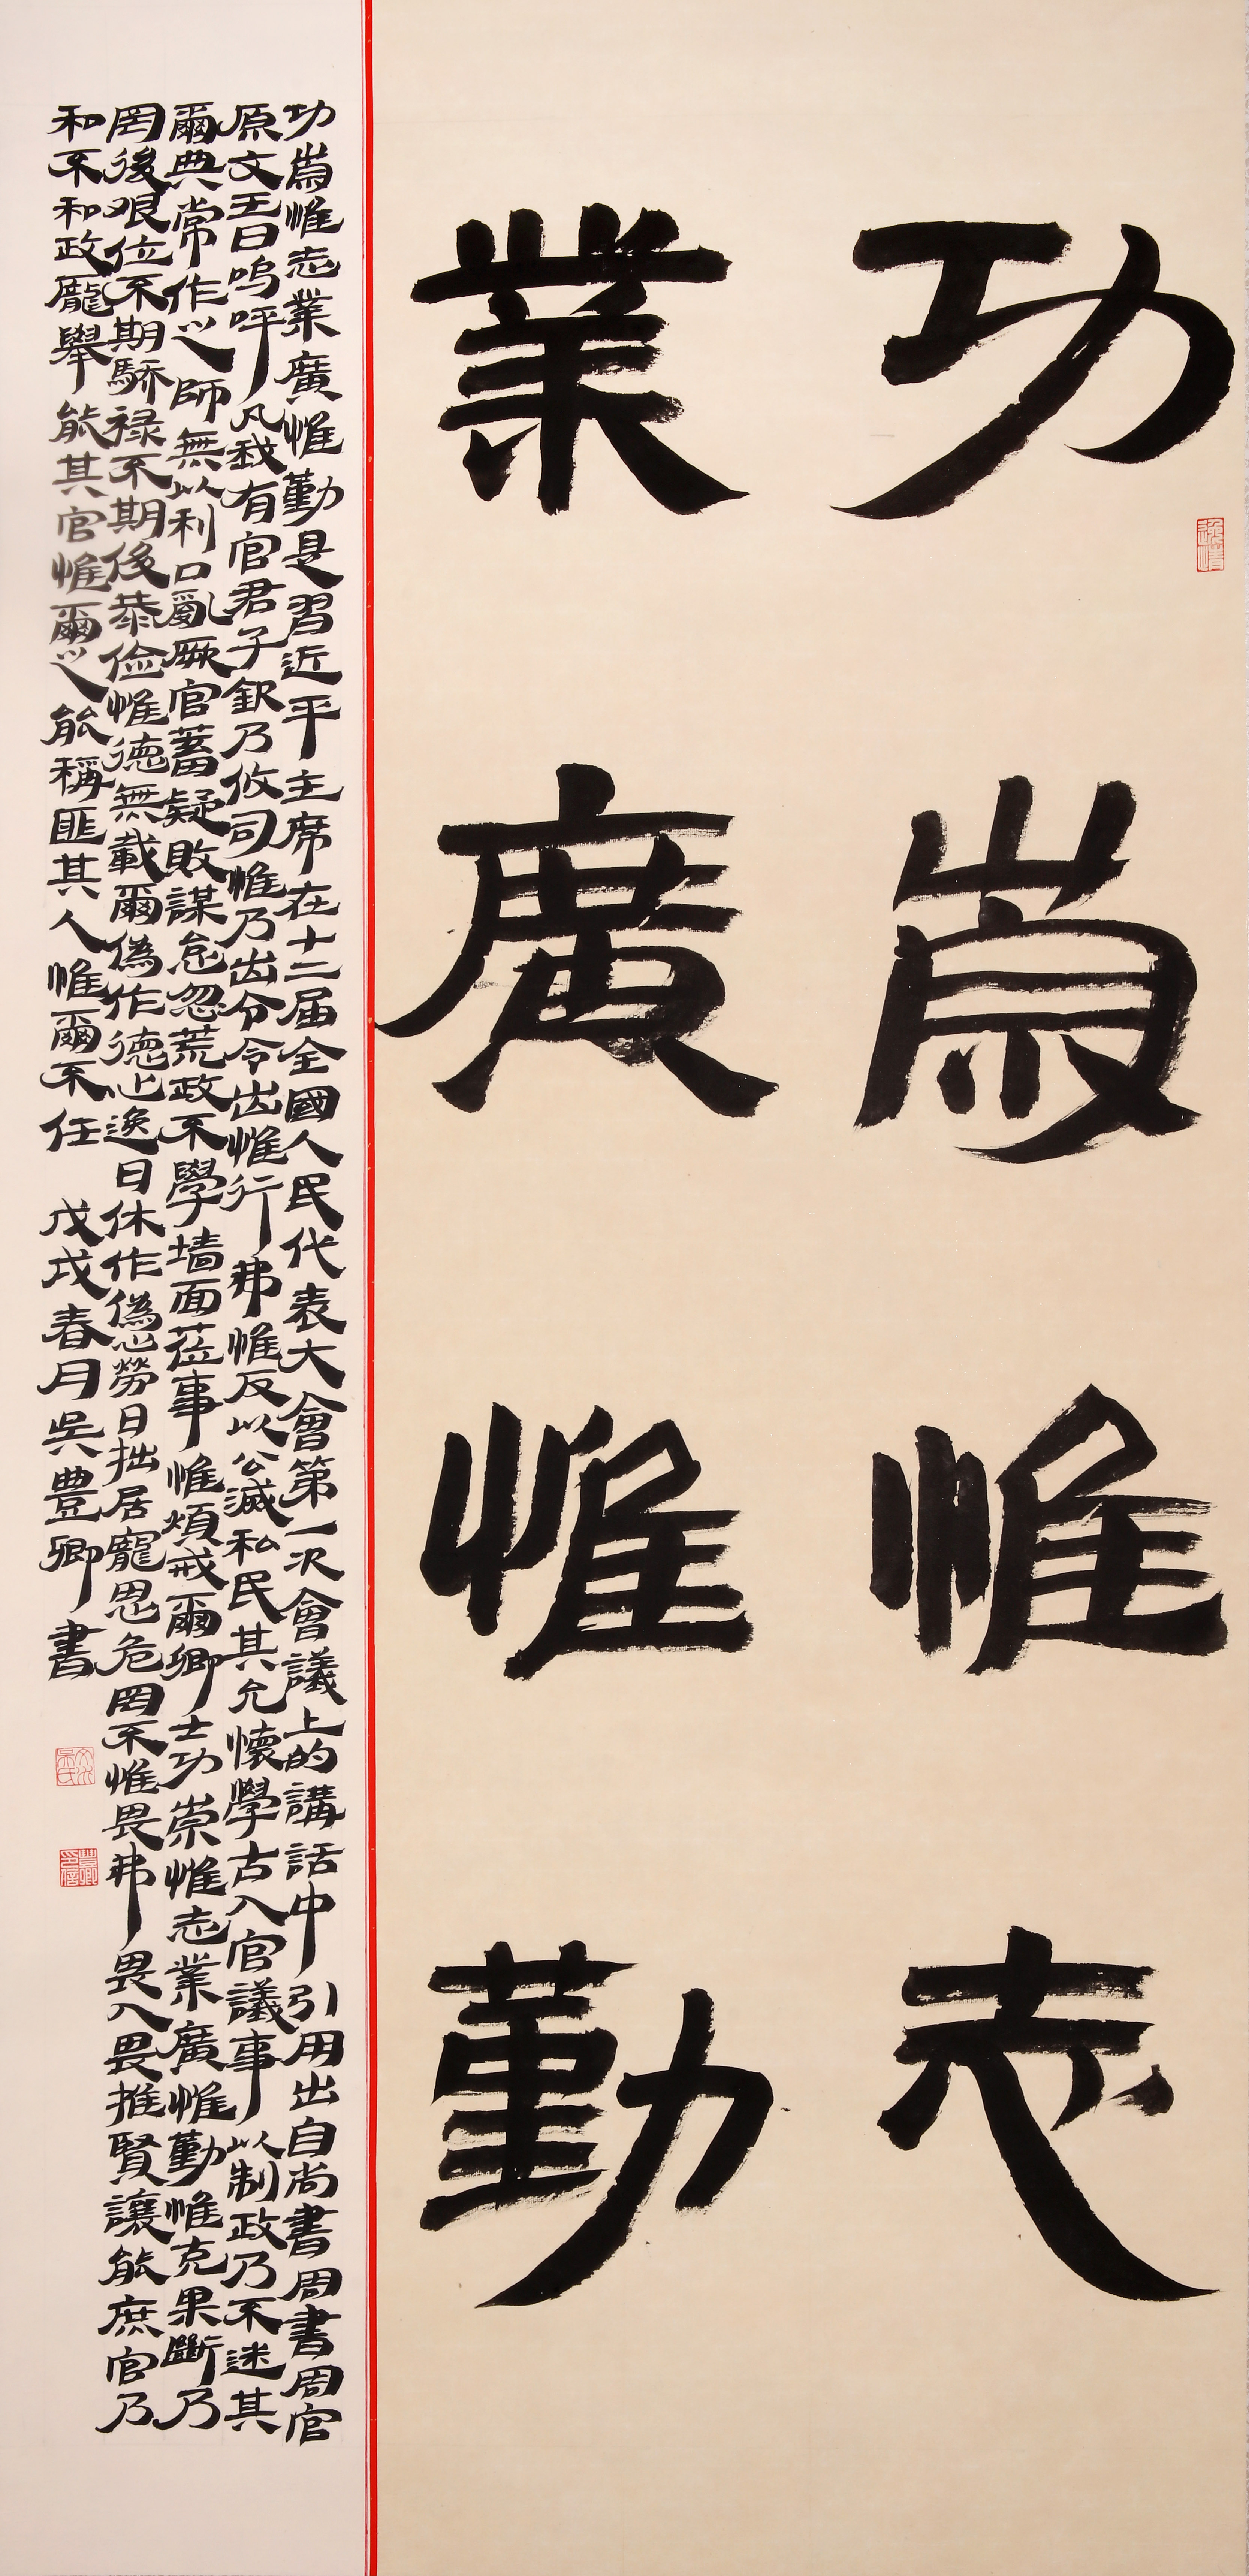 功崇惟志
業廣惟勤
功崇惟志業廣惟勤是習近平主席在十二届全國人民代表大會第一次會議上的講話中引用出自尚書周書周官
原文王曰嗚呼凡我有官君子欽乃攸司惟乃出令令出惟行弗惟反以公滅私民其允懷學古入官議事以制政乃不迷其
爾典常作之師無以利口亂厥官蓄疑敗謀怠忽荒政不學墙面莅事惟煩戒爾卿士功崇惟志業廣惟勤惟克果斷乃
罔後艰位不期驕禄不期侈恭儉惟德無載爾偽作德心逸日休作偽心勞日拙居寵思危罔不惟畏弗畏入畏推賢讓能庶官乃
和不和政厖舉能其官惟爾之能稱匪其人惟爾不任 戊戌春月吳豊卿書